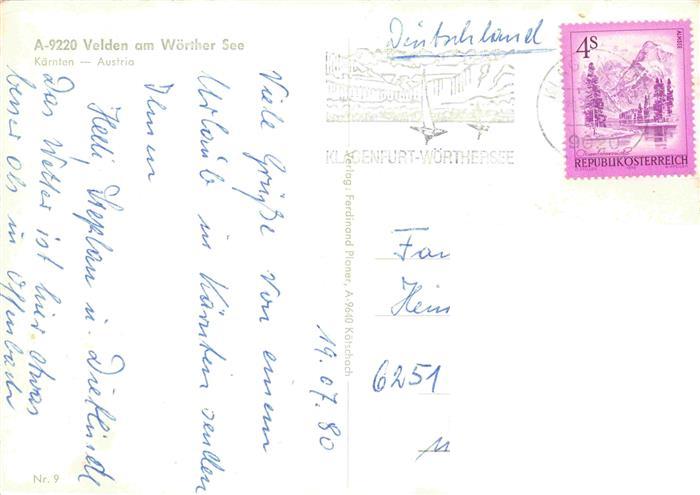 A-9220 Velden am Wörther See
Kärnten — Austria
19.07.80
Viele Grüße von einem
Urlaub in Kärnten senden
Ihnen
Hedi, Stephan u. Dietlinde
Das Wetter ist hier etwas
besser als in Offenbach
Nr. 9
Verlag: Ferdinand Planer, A-9640 Kötschach
Deutschland
KLAGENFURT-WÖRTHERSEE
4S
ALMSEE
REPUBLIK ÖSTERREICH
Fam
Hein
6251